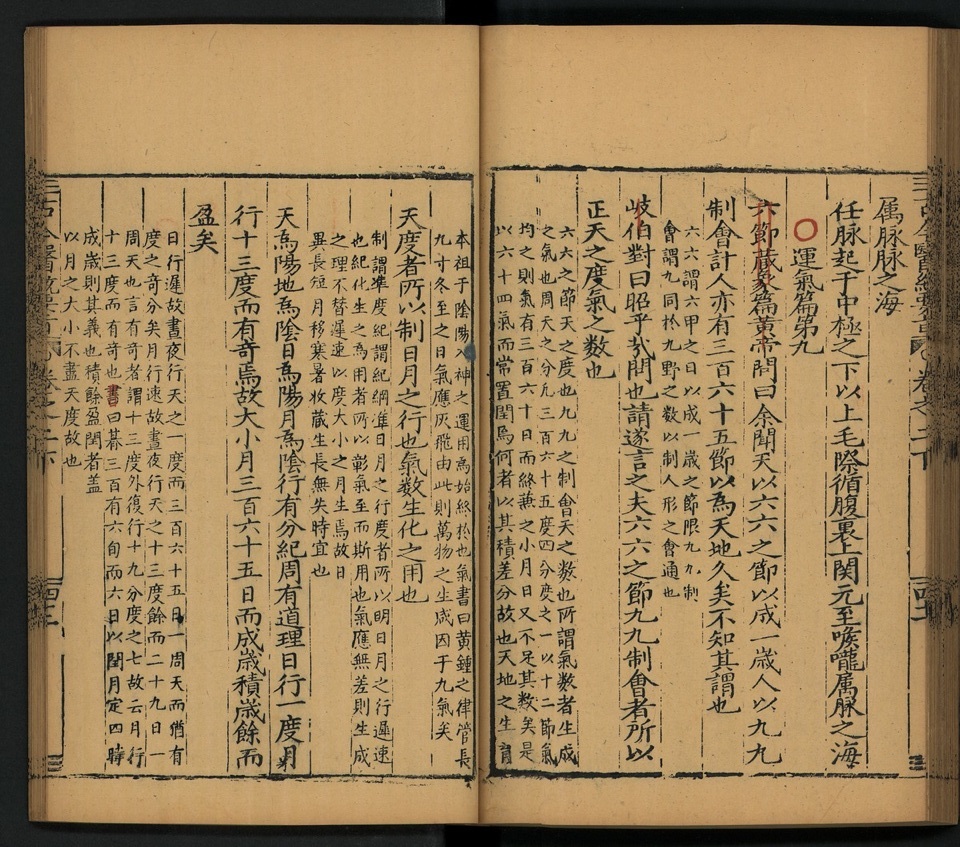 属脉脉之海
任脉起于中極之下以上毛際循腹裏上関元至喉嚨属脉之海
〇運氣篇第九
六節蔵象篇黄帝問曰余聞天以六六之節以成一歳人以九九
制會計人亦有三百六十五節以為天地久矣不知其謂也
六六謂六甲之日以成一歳之節限九九制
會謂九周扵九野之数以制人形之會通也
岐伯對曰昭乎㢤問也請遂言之夫六六之節九九制會者所以
正天之度氣之数也
六六之節天之度也九九之制會天之数也所謂氣数者生成
之氣也周天之分凢三百六十五度四分度之一以十二節氣
均之則氣有三百六十日而終兼之小月日又不足其数矣是
以六十四氣而常置閏焉何者以其積差分故也天地之生育
本祖于陰陽人神之運用為始終扵也氣書曰黄鍾之律管長
九寸冬至之日氣應灰飛由此則萬物之生咸因于九氣矣
天度者所以制日月之行也氣数生化之用也
制謂準度紀謂紀綱準日月之行度者所以明日月之行遲速
也紀化生之為用者所以彰氣至而斯用也氣應無差則生成
之理不替遲速以度大小之月生焉故日
異長短月移寒暑收蔵生長無失時宜也
天為陽地為陰日為陽月為陰行有分紀周有道理日行一度月
行十三度而有奇焉故大小月三百六十五日而成歳積歳餘而
盈矣
日行遲故晝夜行天之一度而三百六十五日一周天而猶有
度之奇分矣月行速故晝夜行天之十三度餘而二十九日一
周天也言有奇者謂十三度外復行十九分度之七故云月行
十三度而有奇也書曰朞三百有六旬而六日以閏月定四時
成歳則其義也積餘盈閏者盖
以月之大小不盡天度故也